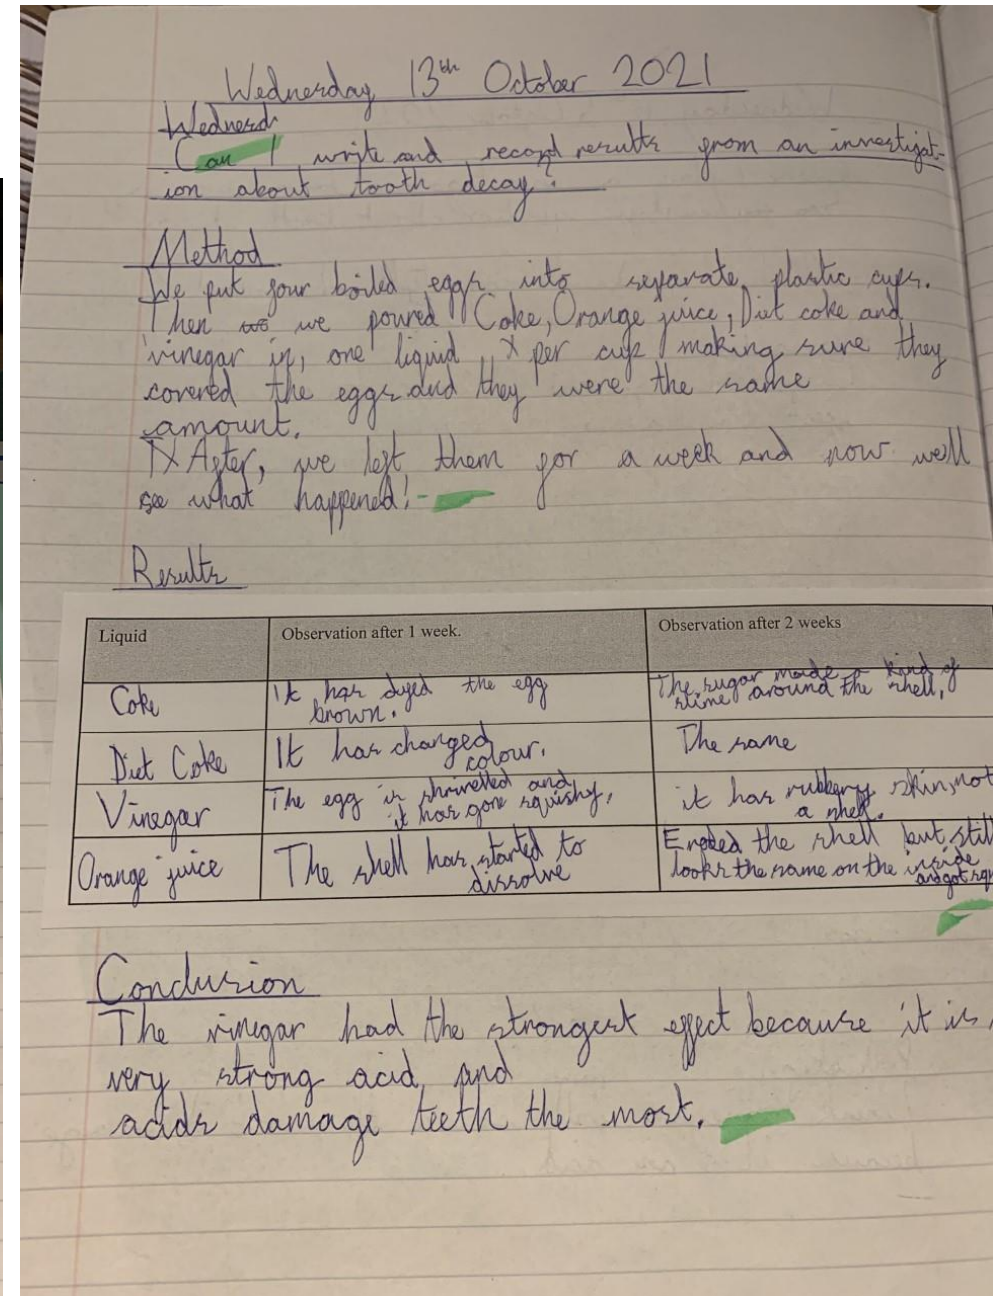 Wednesday 13th October 2021
Wednesd
Can I write and record results from an investigat-
ion about tooth decay?
Method
We put four boiled eggs into separate plastic cups.
Then we we poured Coke, Orange juice, Diet coke and
vinegar in, one liquid per cup making sure they
covered the eggs and they were the same
amount.
After, we left them for a week and now well
see what happened!
Results
Liquid Observation after 1 week. Observation after 2 weeks
Coke It has dyed the egg brown. The sugar made a kind of slime around the shell,
Diet Coke It has changed colour. The same
Vinegar The egg is shrivelled and it has gone squishy, it has rubbery skin, not a shell.
Orange juice The shell has started to dissolve Eroded the shell but still looks the same on the inside and got
Conclusion
The vinegar had the strongest effect because it is
very strong acid, and
acids damage teeth the most.